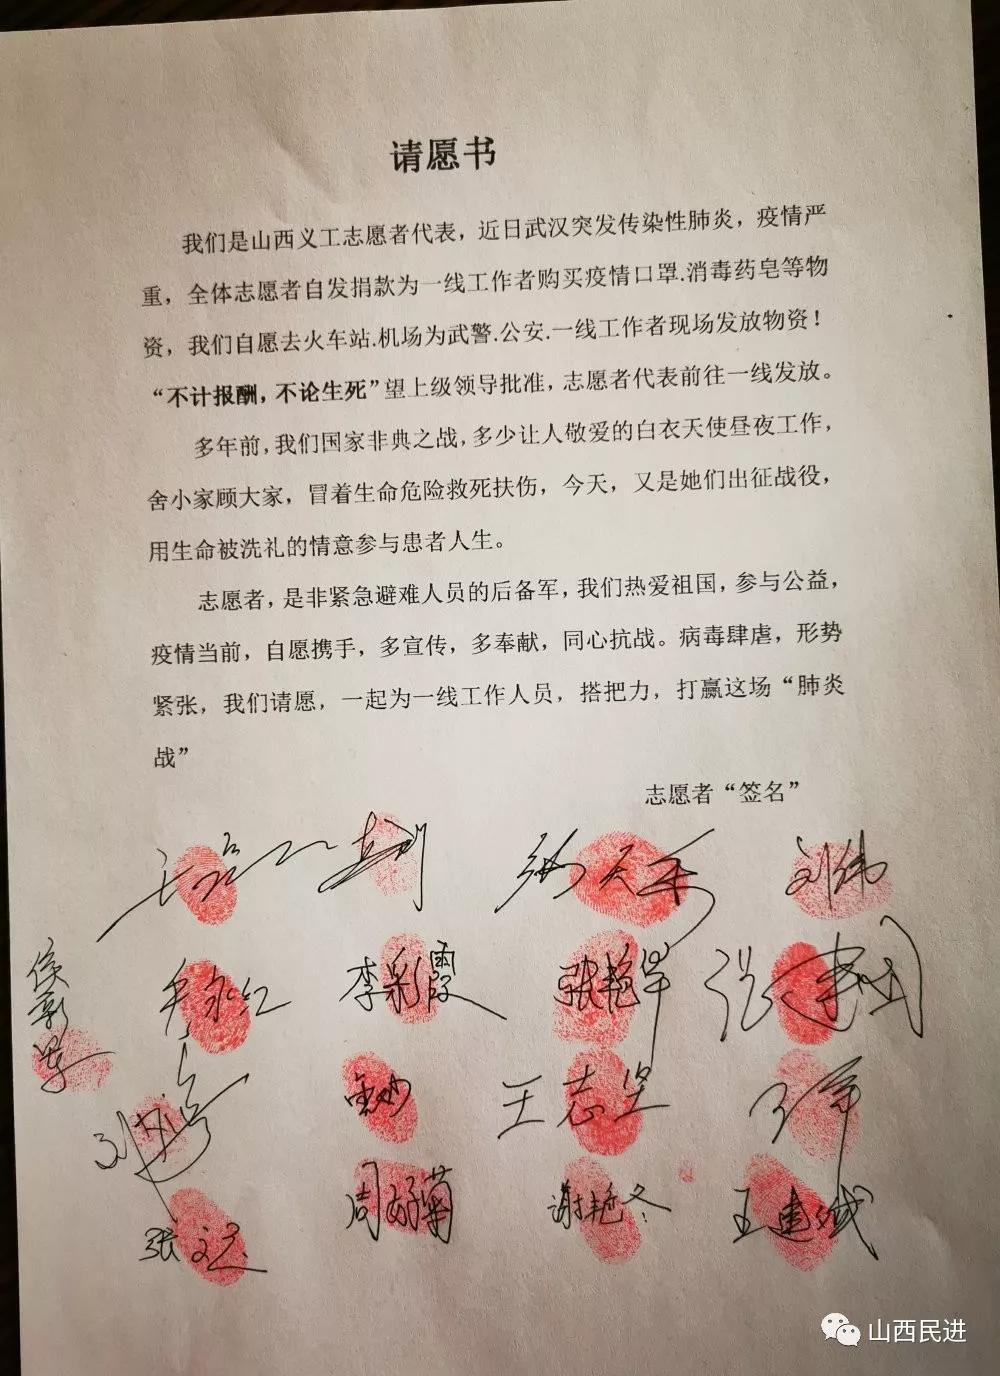 请愿书
我们是山西义工志愿者代表，近日武汉突发传染性肺炎，疫情严
重，全体志愿者自发捐款为一线工作者购买疫情口罩.消毒药皂等物
资，我们自愿去火车站.机场为武警.公安.一线工作者现场发放物资！
“不计报酬，不论生死”望上级领导批准，志愿者代表前往一线发放。
多年前，我们国家非典之战，多少让人敬爱的白衣天使昼夜工作，
舍小家顾大家，冒着生命危险救死扶伤，今天，又是她们出征战役，
用生命被洗礼的情意参与患者人生。
志愿者，是非紧急避难人员的后备军，我们热爱祖国，参与公益，
疫情当前，自愿携手，多宣传，多奉献，同心抗战。病毒肆虐，形势
紧张，我们请愿，一起为一线工作人员，搭把力，打赢这场“肺炎
战”
志愿者“签名”
刘伟
李彩霞 张艳
王志坚
周好菊 谢艳冬 王建斌
山西民进